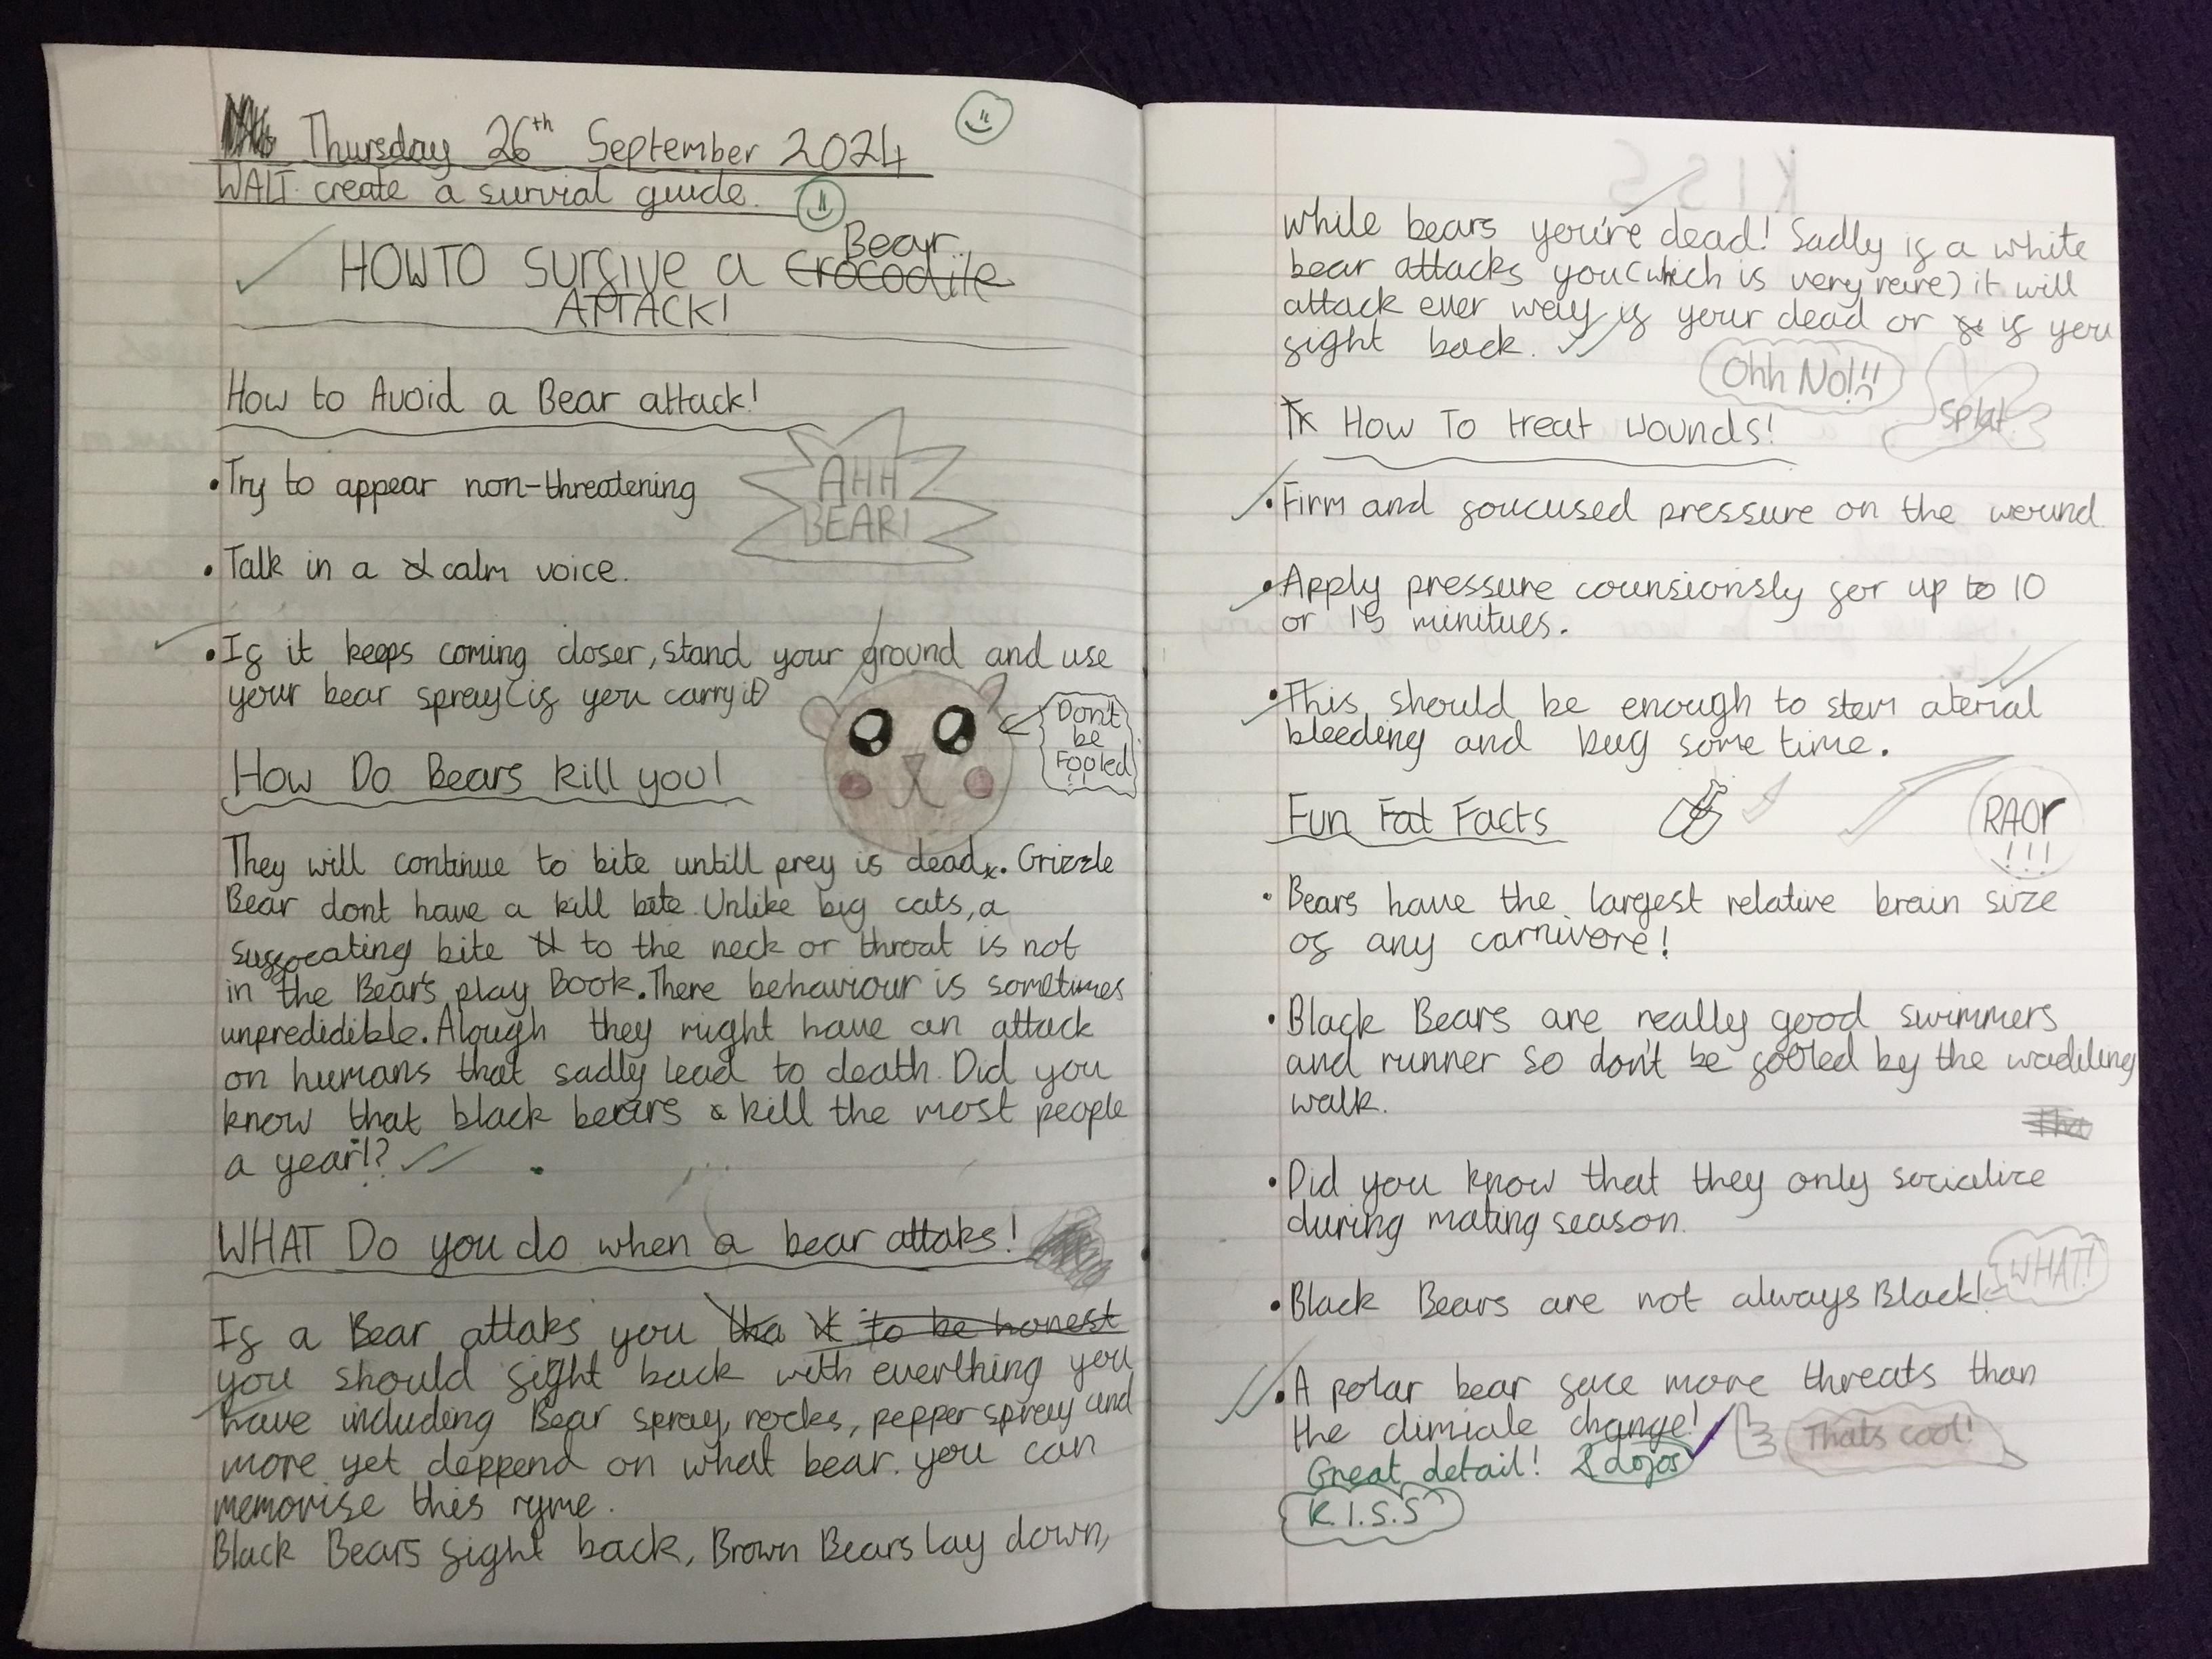 Thursday 26th September 2024
WALT: create a survial guide.
HOW TO survive a Crocodile Bear
ATTACK!
How to Avoid a Bear attack!
• Try to appear non-threatening
AHH
BEAR!
• Talk in a calm voice.
• If it keeps coming closer, stand your ground and use
your bear spray (if you carry it)
Don't
be
Fooled
!!
How Do Bears kill you!
They will continue to bite untill prey is dead. Grizzle
Bear dont have a kill bite. Unlike big cats, a
suffocating bite to the neck or throat is not
in the Bear's play Book. There behaviour is sometimes
unpredidible. Alough they might have an attack
on humans that sadly lead to death. Did you
know that black bears kill the most people
a year!?
WHAT Do you do when a bear attaks!
If a Bear attaks you tha it to be honest
you should fight back with everthing you
have including Bear spray, rocks, pepper spray and
more yet deppend on what bear. you can
memorise this ryme.
Black Bears fight back, Brown Bears lay down,
KISS
while bears you're dead! Sadly if a white
bear attacks you (which is very rare) it will
attack ever way if your dead or if you
fight back.
Ohh No!!!
Splat
How To treat wounds!
• Firm and foucused pressure on the wound.
• Apply pressure counsionsly for up to 10
or 15 minitues.
• This should be enough to stem aterial
bleeding and bug some time.
Fun Fat Facts
RAOr
!!!
• Bears have the largest relative brain size
of any carnivore!
• Black Bears are really good swimmers
and runner so don't be fooled by the waddling
walk.
• Did you know that they only socialize
during mating season.
• Black Bears are not always Black!
WHAT!
• A polar bear face more threats than
the climiale change!
Thats cool!
Great detail! 2 dojos
K.I.S.S